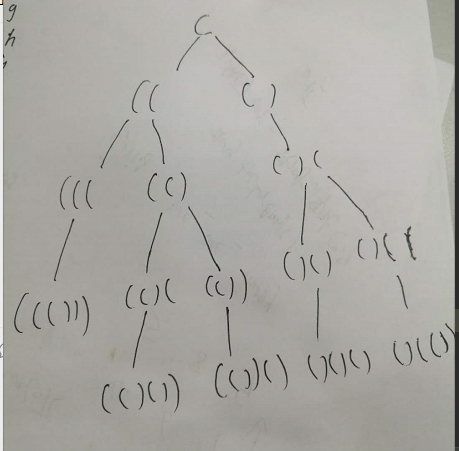 g
h
(
(( ()
((( (() ()(
((())) (()( (()) ()() ()((
(()()) (())() ()()() ()(())